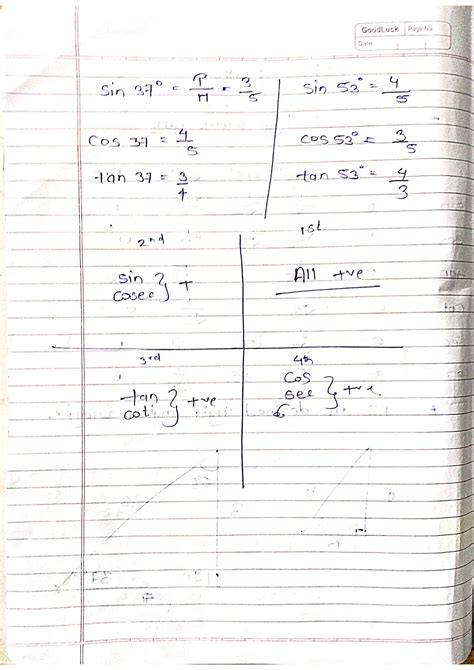 GoodLuck Page No.
Date
sin 37° = P/H = 3/5
cos 37 = 4/5
tan 37 = 3/4
sin 53° = 4/5
cos 53° = 3/5
tan 53° = 4/3
2nd
sin
cosec } +
1st
All +ve
3rd
tan
cot } +ve
4th
cos
sec } +ve